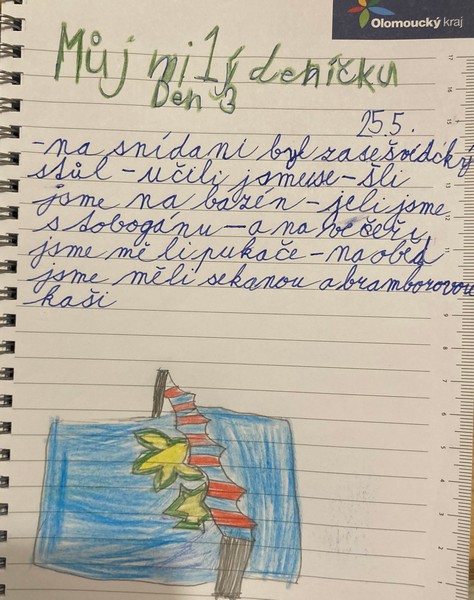 Olomoucký kraj
Můj milý deníčku
Den 3
25.5.
-na snídani byl zase švédský
stůl - učili jsme se - šli
jsme na bazén - jeli jsme
s tobogánu - a na večeři
jsme měli pukače - na oběd
jsme měli sekanou a bramborovou
kaši